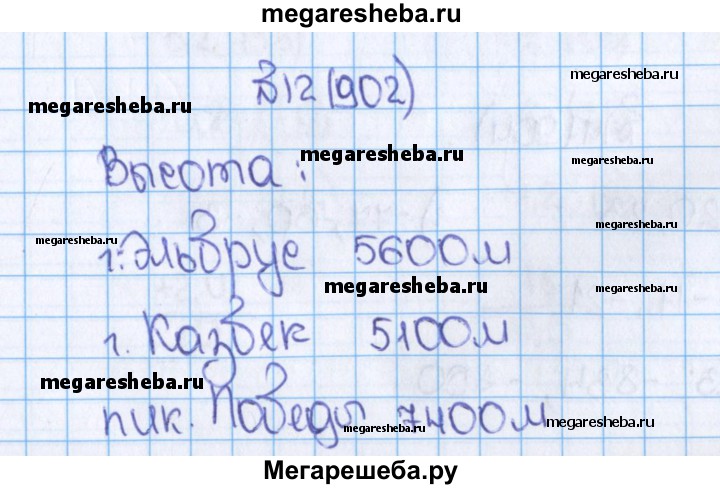 megaresheba.ru
В12(902)
megaresheba.ru
megaresheba.ru
Высота:
megaresheba.ru
megaresheba.ru
megaresheba.ru
г. Эльбрус 5600м
megaresheba.ru
megaresheba.ru
г. Казбек 5100м
megaresheba.ru
megaresheba.ru
пик. Победы 7400м
megaresheba.ru
Мегарешеба.ру